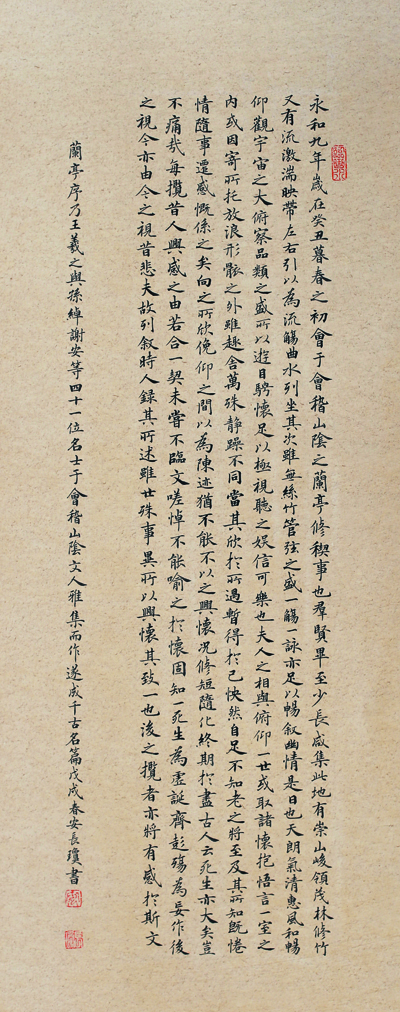 永和九年歲在癸丑暮春之初會于會稽山陰之蘭亭修稧事也羣賢畢至少長咸集此地有崇山峻領茂林修竹
又有流激湍映帶左右引以為流觴曲水列坐其次雖無絲竹管弦之盛一觴一詠亦足以暢叙幽情是日也天朗氣清惠風和暢
仰觀宇宙之大俯察品類之盛所以遊目騁懷足以極視聽之娛信可樂也夫人之相與俯仰一世或取諸懷抱悟言一室之
內或因寄所托放浪形骸之外雖趣舍萬殊靜躁不同當其欣於所遇暫得於己快然自足不知老之將至及其所知既惓
情隨事遷感慨係之矣向之所欣俛仰之間以為陳迹猶不能不以之興懷況修短隨化終期於盡古人云死生亦大矣豈
不痛哉每攬昔人興感之由若合一契未嘗不臨文嗟悼不能喻之於懷固知一死生為虛誕齊彭殤為妄作後
之視今亦由今之視昔悲夫故列叙時人錄其所述雖世殊事異所以興懷其致一也後之攬者亦將有感於斯文
蘭亭序乃王羲之與孫綽謝安等四十一位名士于會稽山陰文人雅集而作遂成千古名篇戊戌春安長瓊書